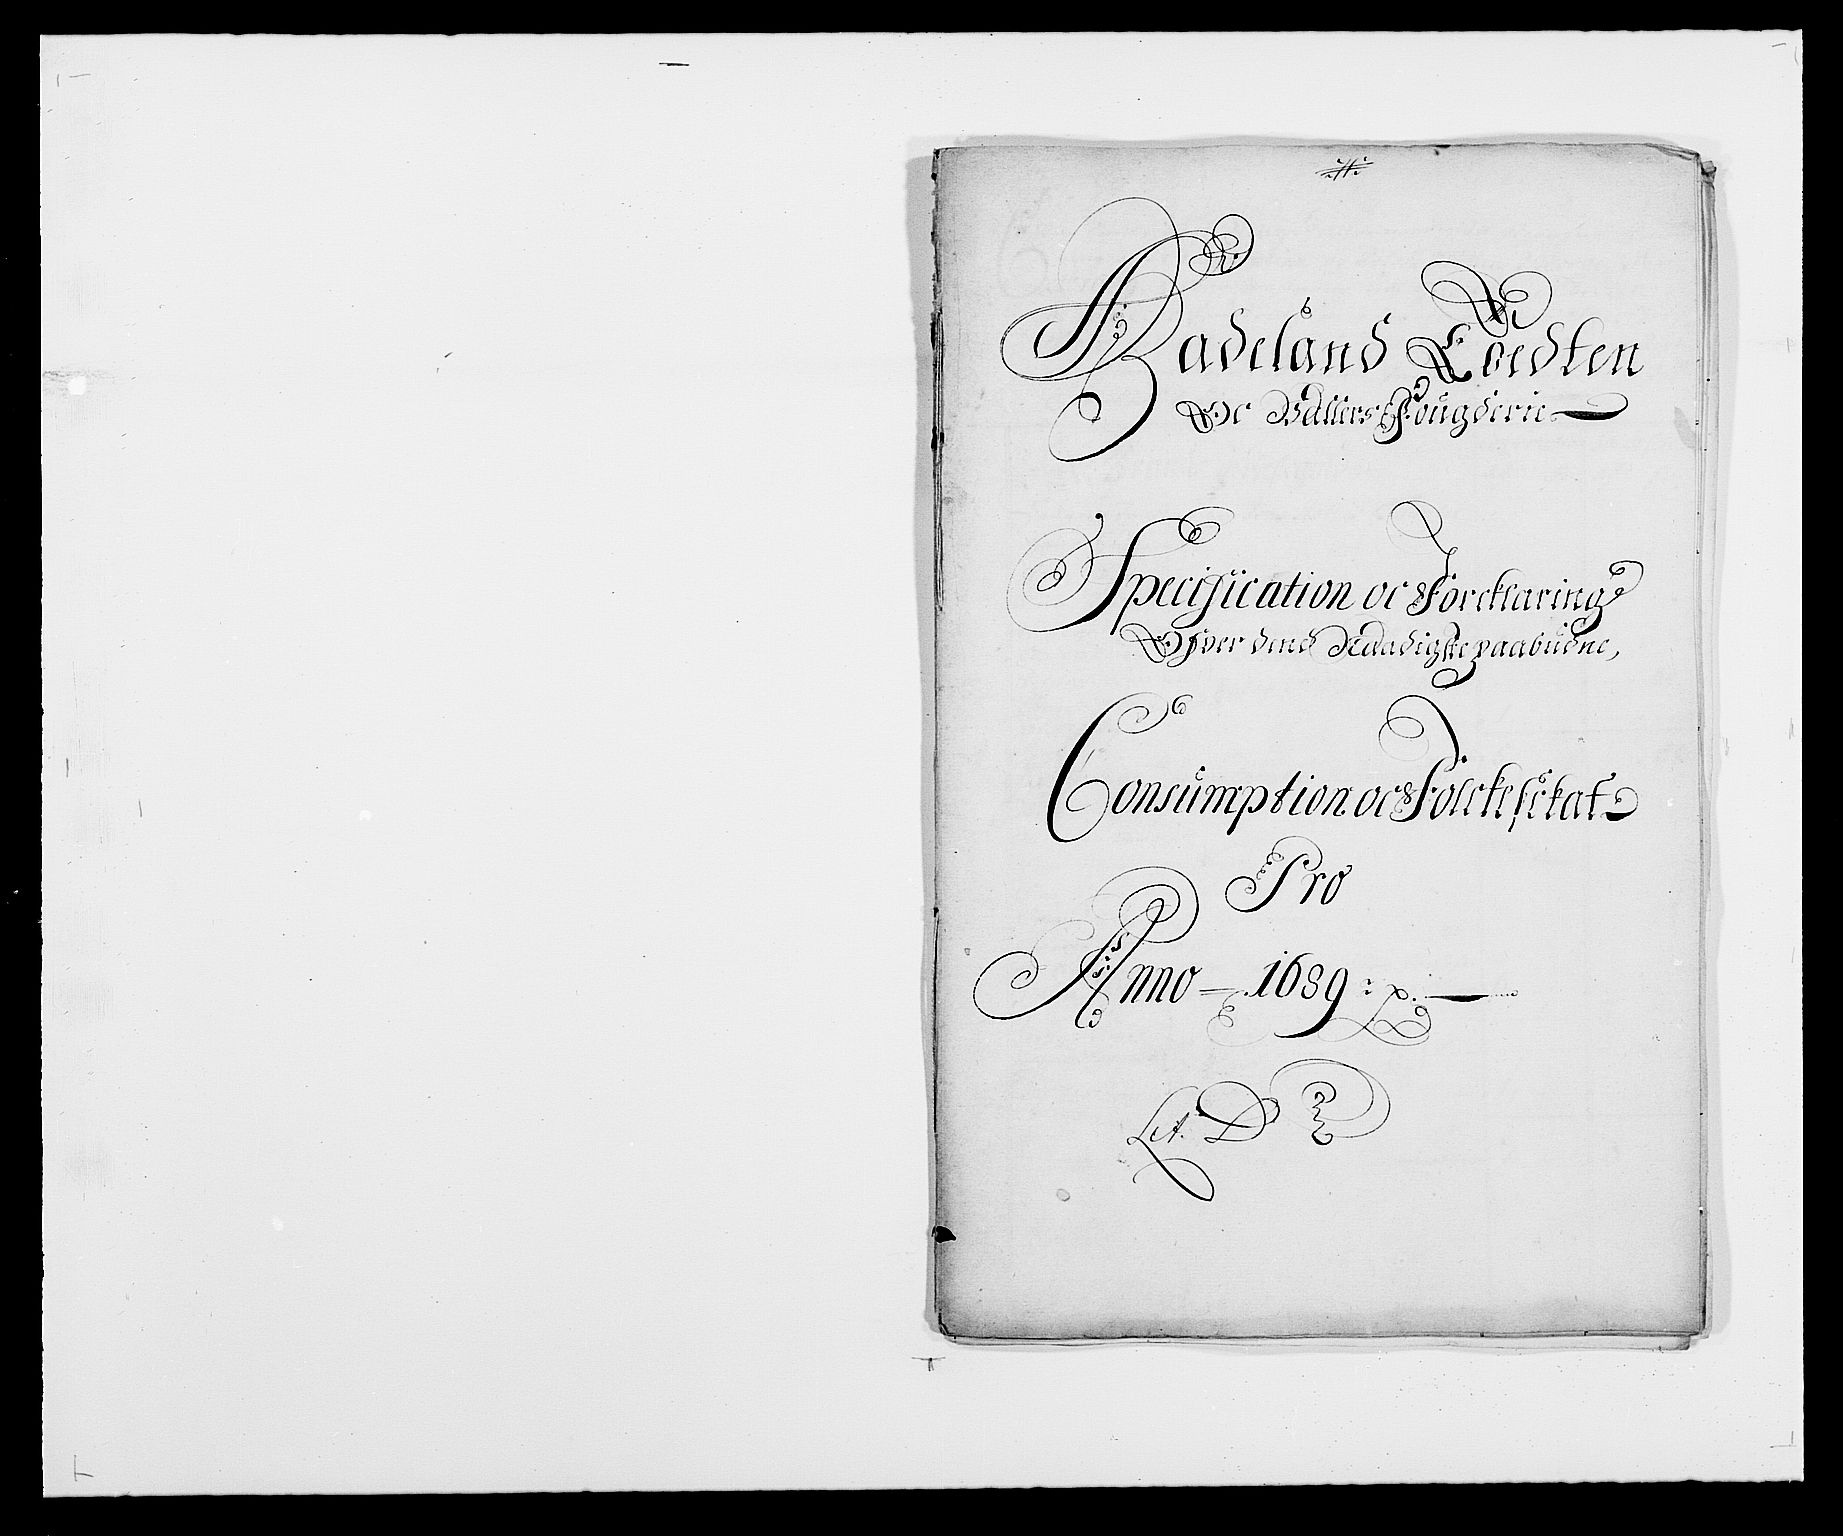 Hadeland Toedten
Oc Valders Fougderie
Specification oc Forcklaring
Ofver dend Naadigste paabudne,
Consumption oc Folckeschat
Pro
Anno 1689
Lit. D